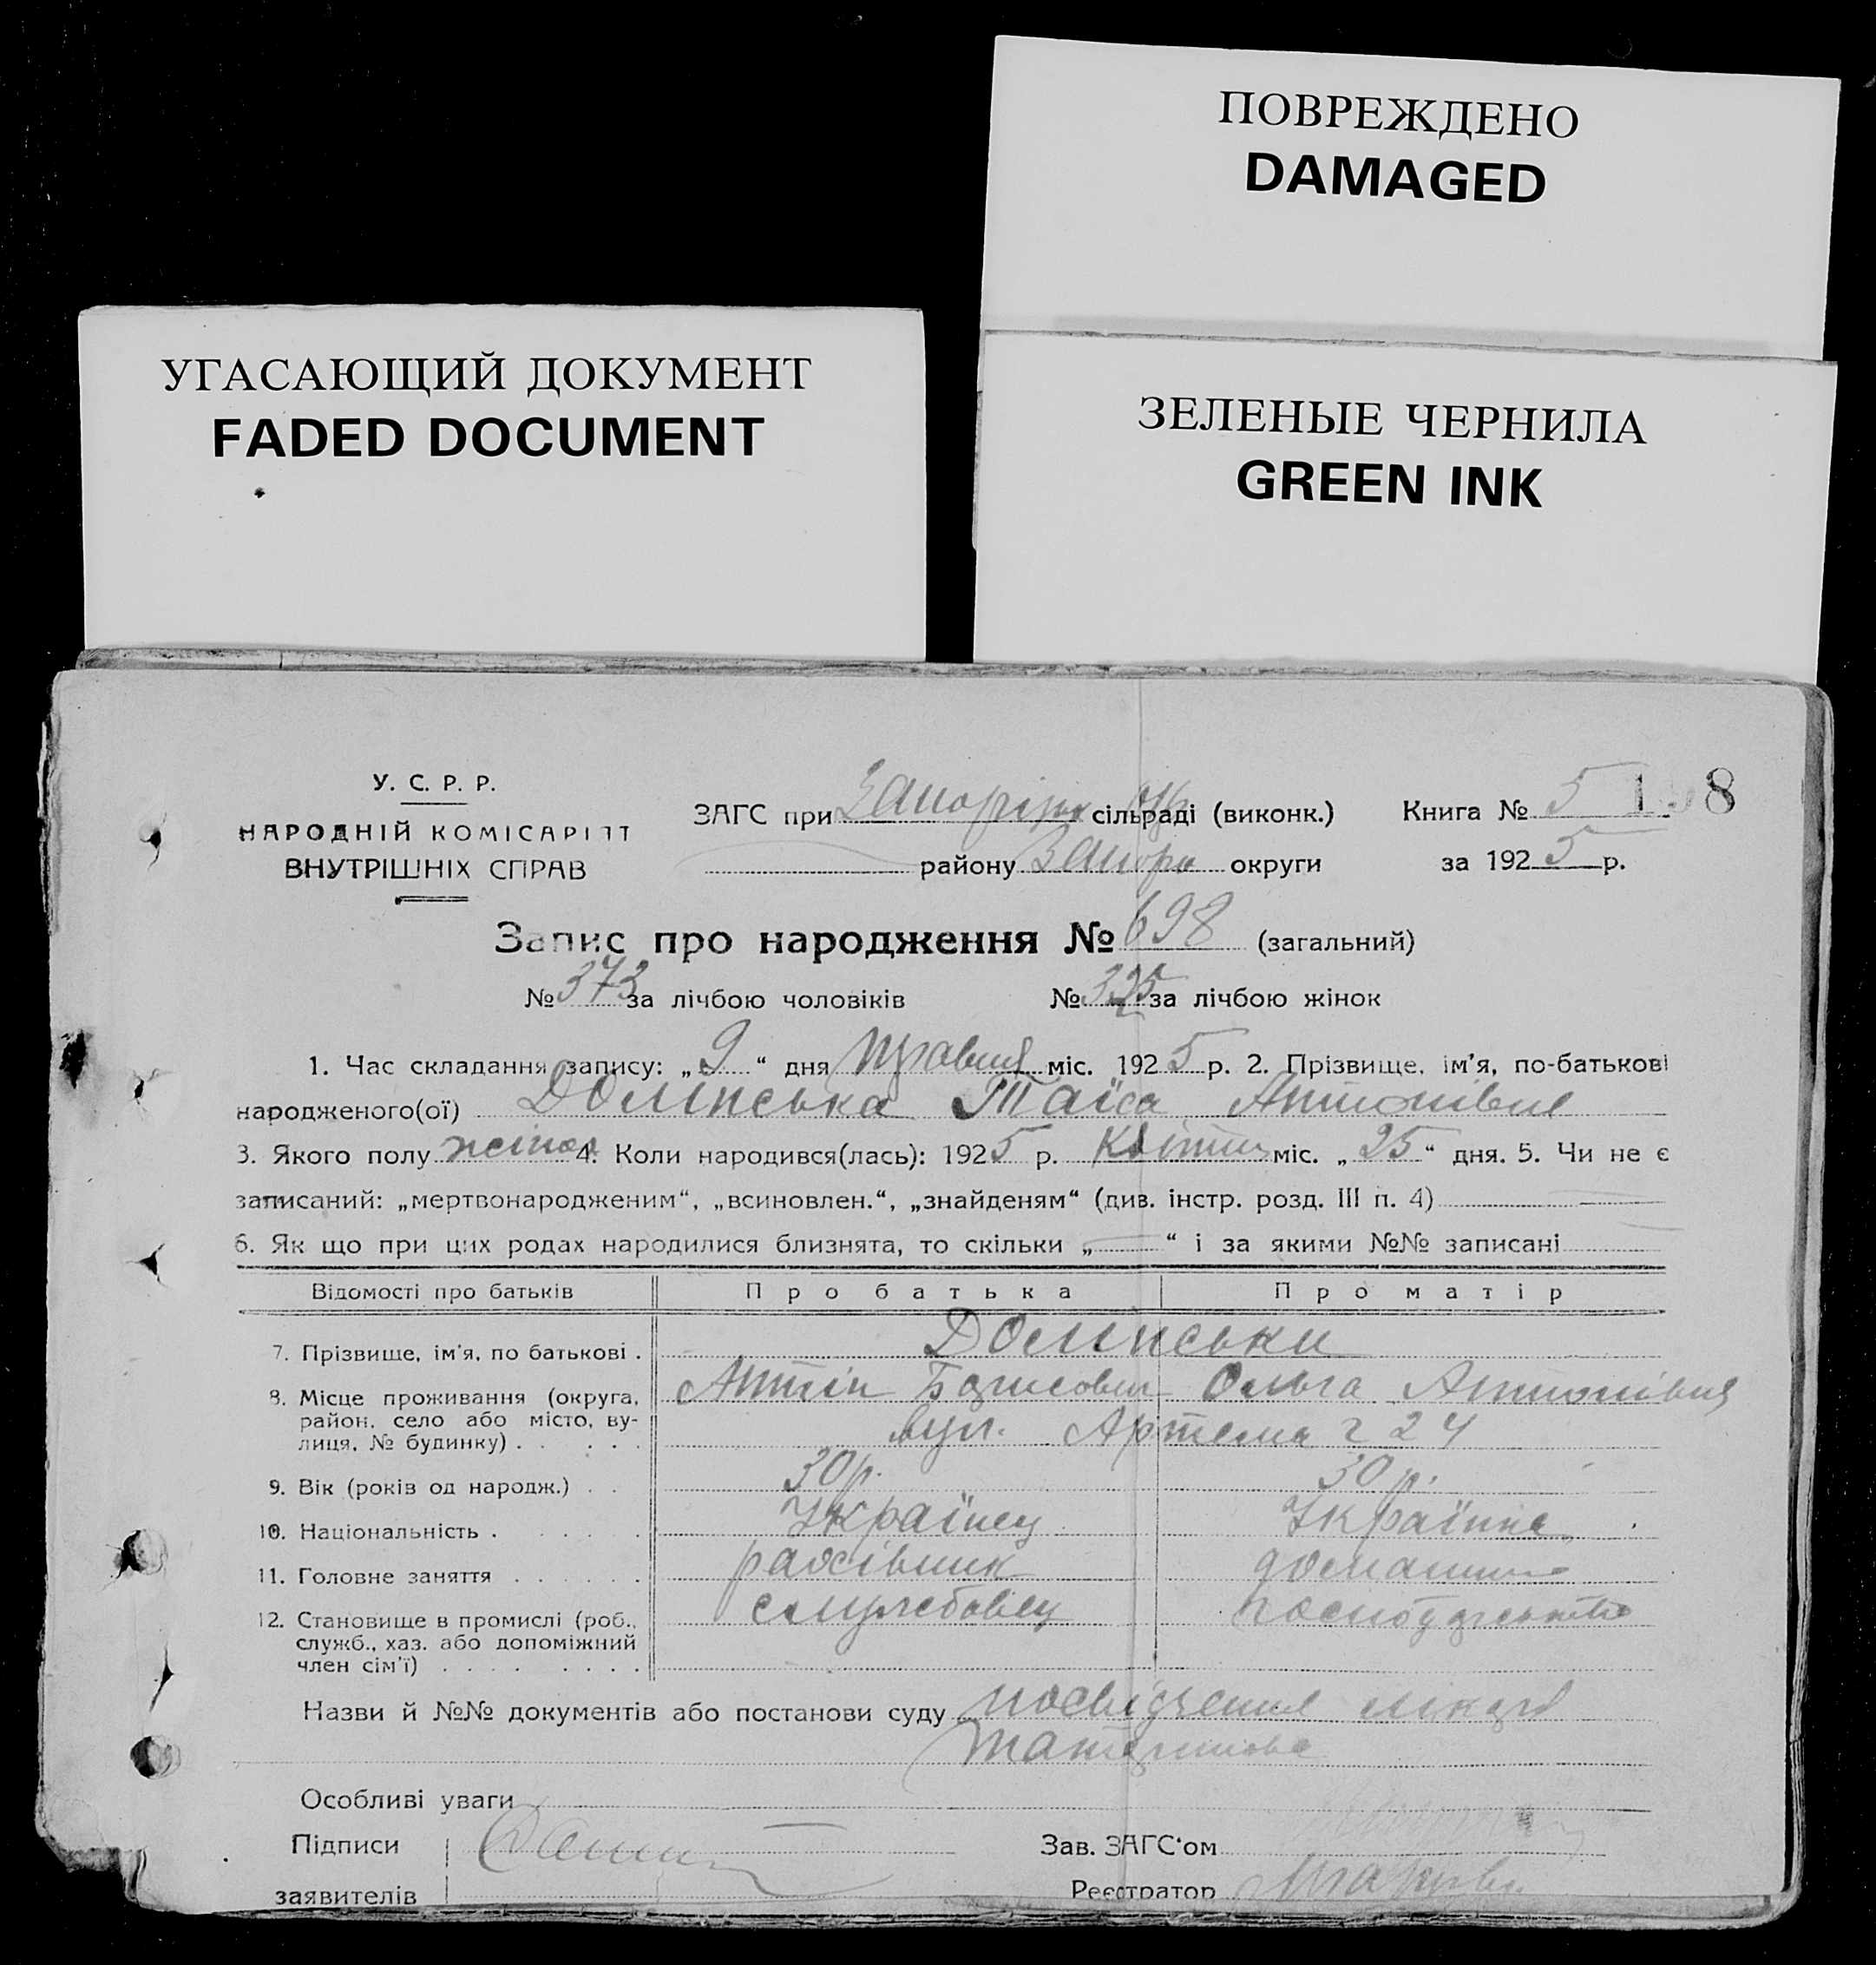 ПОВРЕЖДЕНО
DAMAGED
УГАСАЮЩИЙ ДОКУМЕНТ
FADED DOCUMENT
ЗЕЛЕНЫЕ ЧЕРНИЛА
GREEN INK
У. С. Р. Р.
НАРОДНІЙ КОМІСАРІЯТ
ВНУТРІШНІХ СПРАВ
ЗАГС при Запоріжск окр сільраді (виконк.)
району Запоріз округи
Книга № 5 1 8
за 1925 р.
Запис про народження № 698 (загальний)
№ 373 за лічбою чоловіків № 325 за лічбою жінок
1. Час складання запису: „9“ дня травня міс. 1925 р. 2. Прізвище, ім'я, по-батькові
народженого(ої) Долінська Таїса Антонівна
3. Якого полу жіноч 4. Коли народився(лась): 1925 р. Квітня міс. „25“ дня. 5. Чи не є
записаний: „мертвонародженим“, „всиновлен.“, „знайденям“ (див. інстр. розд. III п. 4)
6. Як що при цих родах народилися близнята, то скільки „—“ і за якими №№ записані
Відомості про батьків Про батька Про матір
7. Прізвище, ім'я, по батькові . Долінськи
Антін Борисович Ольга Антонівна
8. Місце проживання (округа,
район, село або місто, ву-
лиця, № будинку) . . . . . вул. Артема ч 24
9. Вік (років од народж.) . . 30 р. 30 р.
10. Національність . . . . . Українец Українка
11. Головне заняття . . . . . . рахівник домашне
12. Становище в промислі (роб.,
служб., хаз. або допоміжний
член сім'ї) . . . . . . . . службовец господарство
Назви й №№ документів або постанови суду посвідчення лікаря
Особливі уваги
Підписи
заявителів
Зав. ЗАГС'ом
Реєстратор